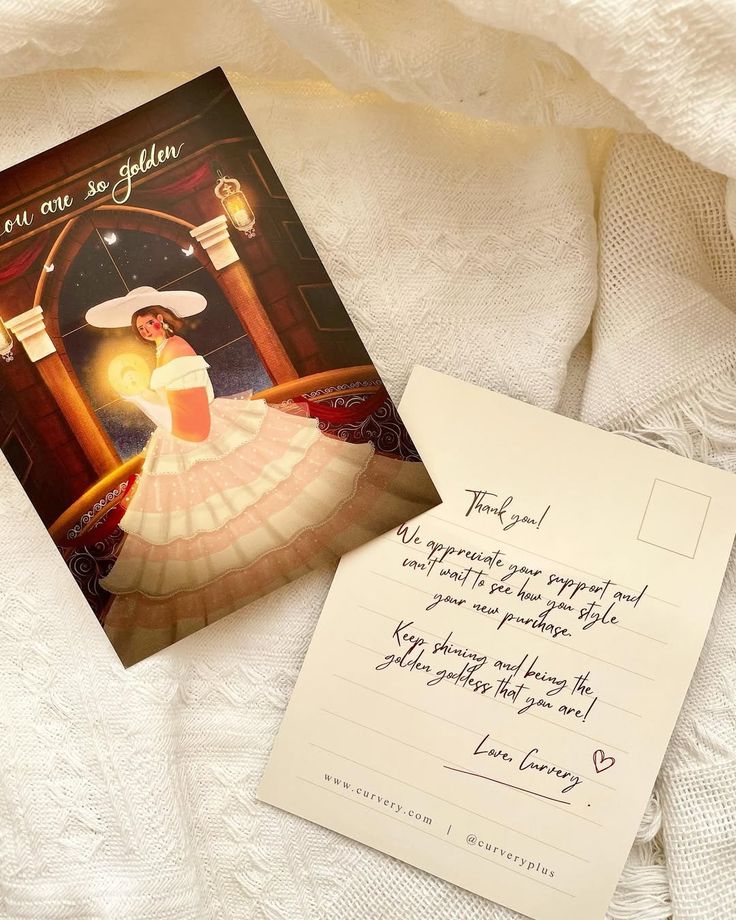 ou are so golden
Thank you!
We appreciate your support and
can't wait to see how you style
your new purchase.
Keep shining and being the
golden goddess that you are!
Love, Curvery
www.curvery.com | @curveryplus